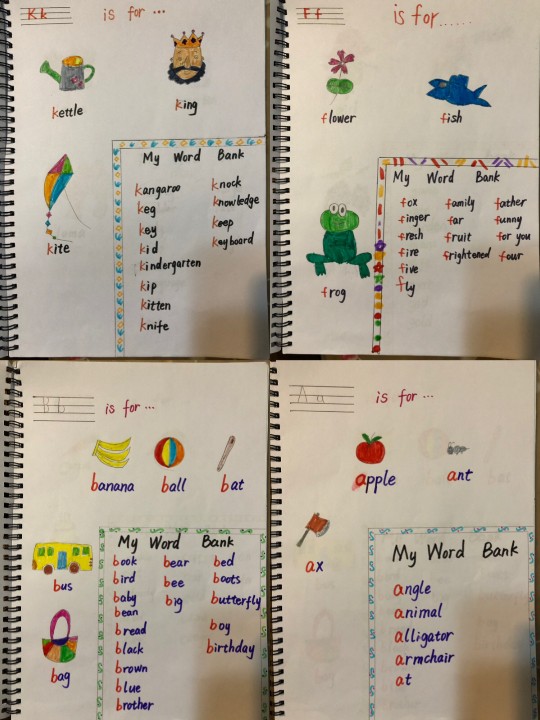 Kk is for ...
kettle king
kite
My Word Bank
kangaroo knock
keg knowledge
key keep
kid keyboard
kindergarten
kip
kitten
knife
Ff is for......
flower fish
frog
My Word Bank
fox family father
finger far funny
fresh fruit for you
fire frightened four
five
fly
Bb is for ...
banana ball bat
bus
bag
My Word Bank
book bear bed
bird bee boots
baby big butterfly
bean boy
bread birthday
black
brown
blue
brother
Aa is for ...
apple ant
ax
My Word Bank
angle
animal
alligator
armchair
at